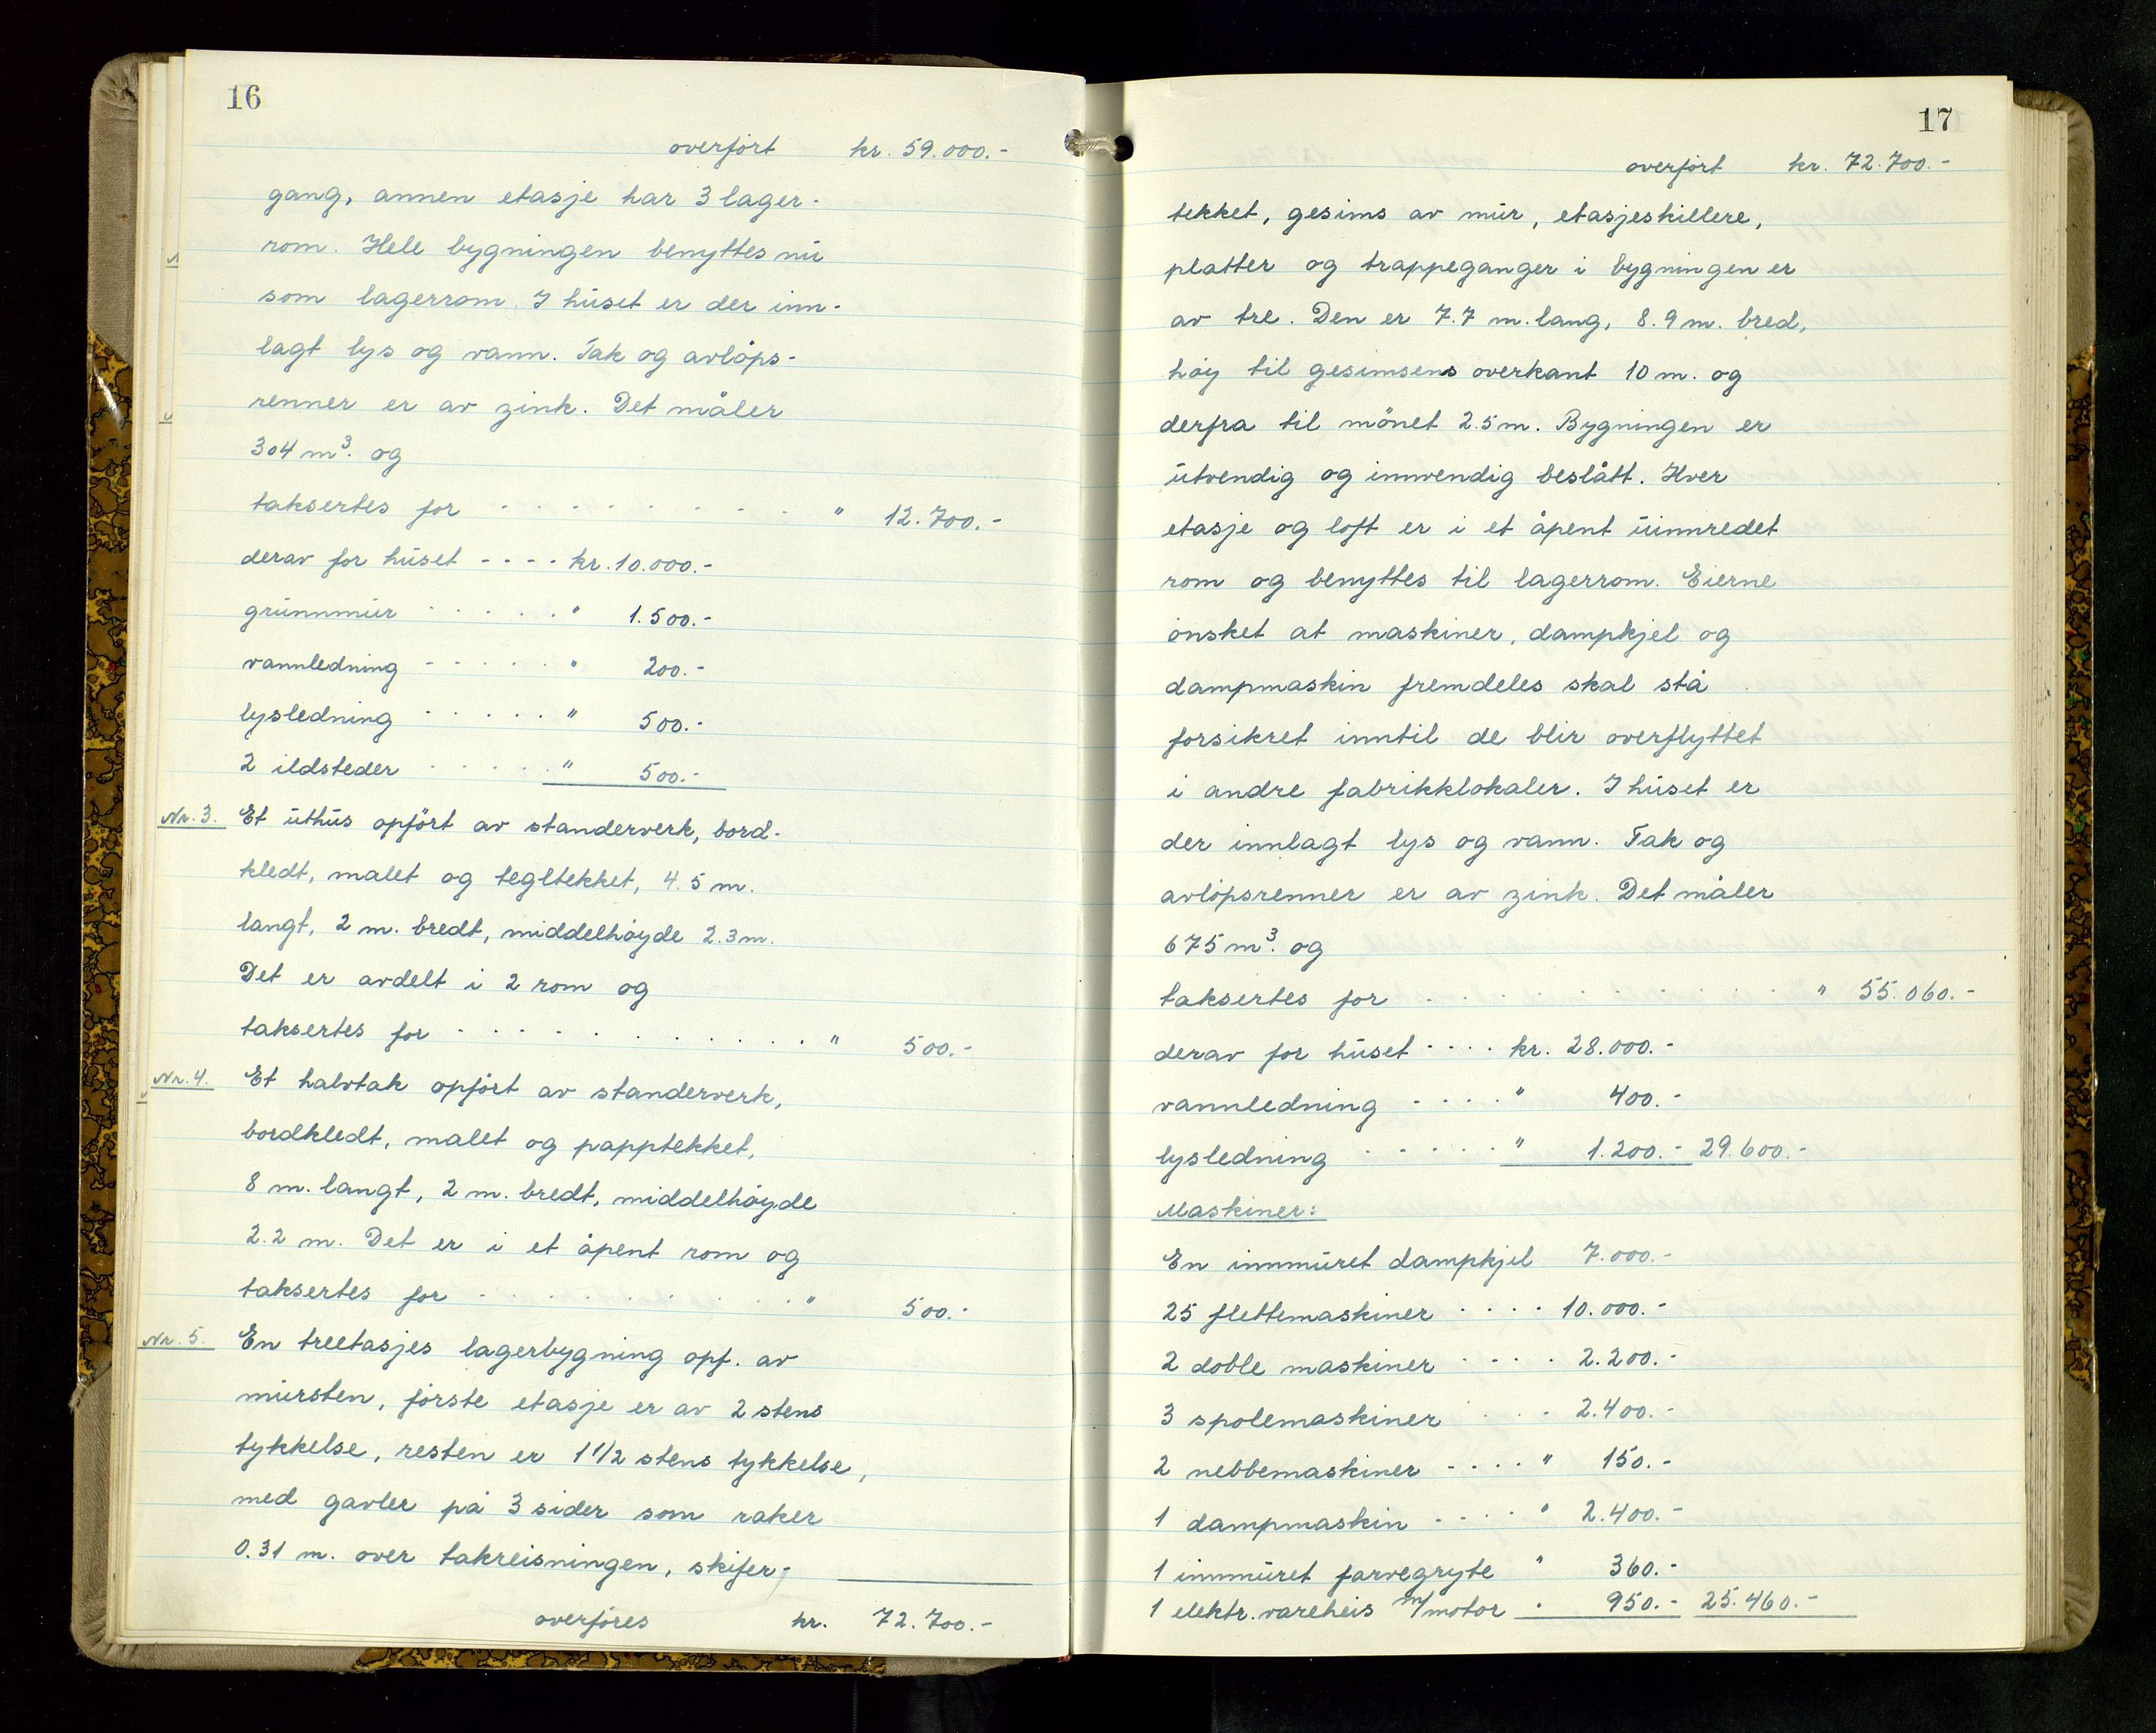 16
overfört kr. 59.000.-
gang, annen etasje har 3 lager-
rom. Hele bygningen benyttes nu
som lagerrom. I huset er der inn-
lagt lys og vann. Tak og avlöps-
renner er av zink. Det måler
304 m³. og
taksertes for - - - - - - - - - - " 12.700.-
derav for huset - - - - kr. 10.000.-
grunnmur - - - - - " 1.500.-
vannledning - - - - - " 200.-
lysledning - - - - - " 500.-
2 ildsteder - - - - - " 500.-
Nr. 3. Et uthus opfört av standerverk, bord-
kledt, malet og tegltekket, 4.5 m.
langt, 2 m. bredt, middelhöyde 2.3 m.
Det er avdelt i 2 rom og
taksertes for - - - - - - - - - - " 500.-
Nr. 4. Et halvtak opfört av standerverk,
bordkledt, malet og papptekket,
8 m. langt, 2 m. bredt, middelhöyde
2.2 m. Det er i et åpent rom og
taksertes for - - - - - - - - - - " 500.-
Nr. 5. En treetasjes lagerbygning opf. av
mursten, förste etasje er av 2 stens
tykkelse, resten er 1 1/2 stens tykkelse,
med gavler på 3 sider som raker
0.31 m. over takreisningen, skifer-
overföres kr. 72.700.-
17
overfört kr. 72.700.-
tekket, gesims av mur, etasjeskillere,
platter og trappeganger i bygningen er
av tre. Den er 7.7 m. lang, 8.9 m. bred,
höy til gesimsens overkant 10 m. og
derfra til mönet 2.5 m. Bygningen er
utvendig og innvendig beslått. Hver
etasje og loft er i et åpent uinnredet
rom og benyttes til lagerrom. Eierne
önsket at maskiner, dampkjel og
dampmaskin fremdeles skal stå
forsikret inntil de blir overflyttet
i andre fabrikklokaler. I huset er
der innlagt lys og vann. Tak og
avlöpsrenner er av zink. Det måler
675 m³. og
taksertes for - - - - - - - - - - " 55.060.-
derav for huset - - - - kr. 28.000.-
vannledning - - - - " 400.-
lysledning - - - - - " 1.200.- 29.600.-
Maskiner:
En innmuret dampkjel 7.000.-
25 flettemaskiner - - - - 10.000.-
2 doble maskiner - - - - 2.200.-
3 spolemaskiner - - - - 2.400.-
2 nebbemaskiner - - - - " 150.-
1 dampmaskin - - - - " 2.400.-
1 innmuret farvegryte " 360.-
1 elektr. vareheis m/motor " 950.- 25.460.-